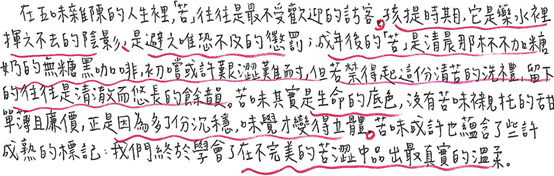 在五味雜陳的人生裡,「苦」往往是最不受歡迎的訪客。孩提時期,它是藥水裡
揮之不去的陰影、是避之唯恐不及的懲罰；成年後的「苦」是清晨那杯不加糖
奶的無糖黑咖啡,初嚐或許艱澀難耐,但若禁得起這份清苦的洗禮,留下
的往往是清澈而悠長的餘韻。苦味其實是生命的底色,沒有苦味襯托的甜
單薄且廉價,正是因為多了份沉穩,味覺才變得立體。苦味或許也蘊含了些許
成熟的標記：我們終於學會了在不完美的苦澀中品出最真實的溫柔。